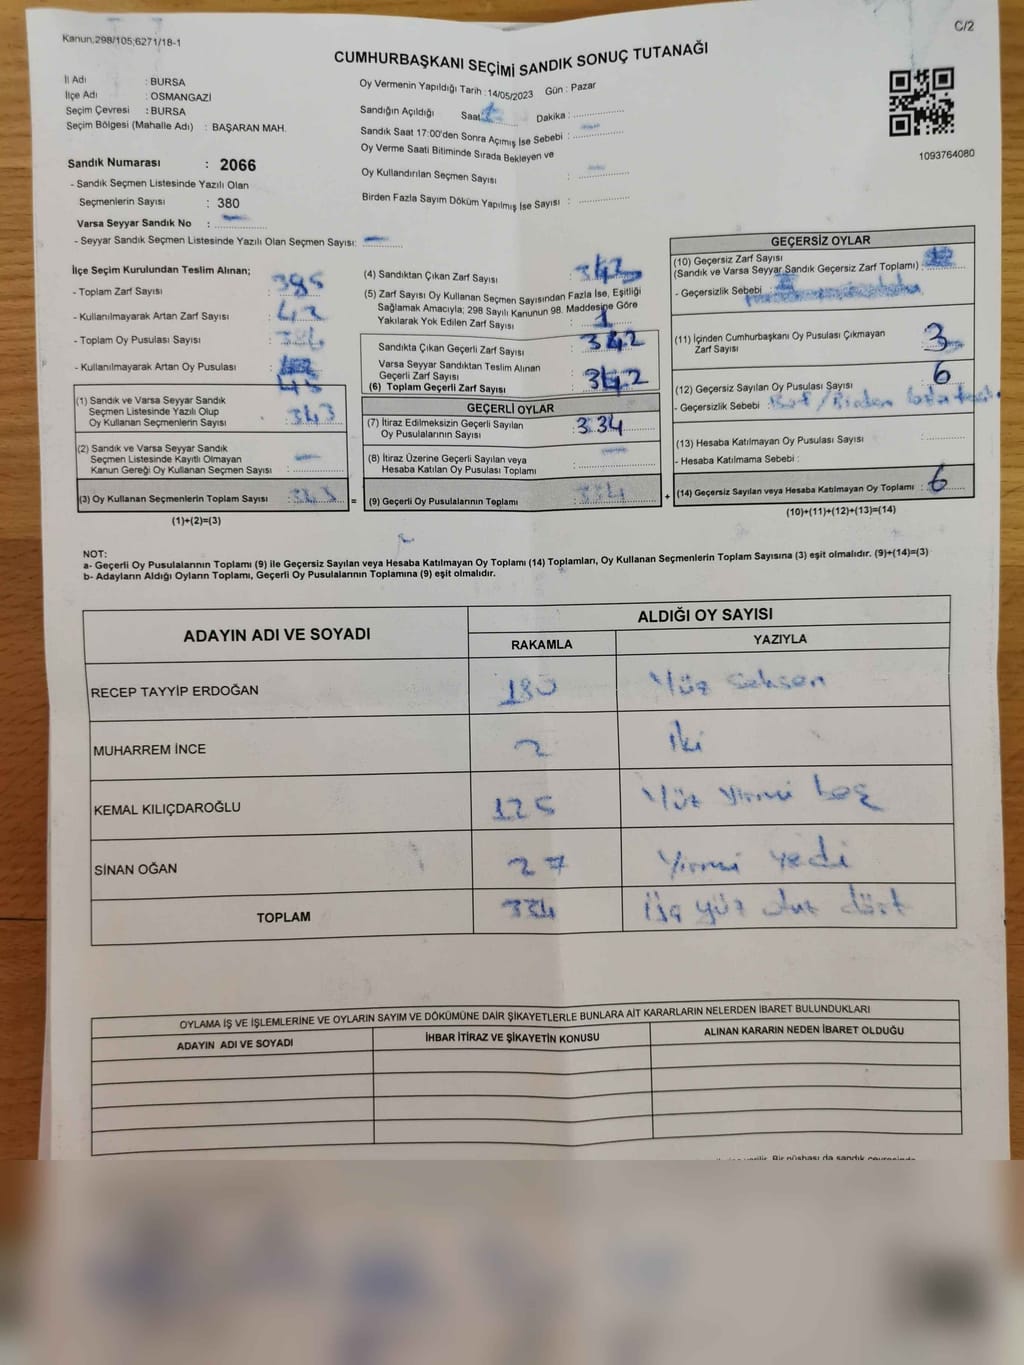 Kanun,298/105;6271/18-1
C/2
CUMHURBAŞKANI SEÇİMİ SANDIK SONUÇ TUTANAĞI
İl Adı : BURSA
İlçe Adı : OSMANGAZİ
Seçim Çevresi : BURSA
Seçim Bölgesi (Mahalle Adı) : BAŞARAN MAH.
Oy Vermenin Yapıldığı Tarih :14/05/2023 Gün : Pazar
Sandığın Açıldığı Saat Dakika :
Sandık Saat 17:00'den Sonra Açımış İse Sebebi :
Oy Verme Saati Bitiminde Sırada Bekleyen ve
Oy Kullandırılan Seçmen Sayısı :
Birden Fazla Sayım Döküm Yapılmış İse Sayısı :
1093764080
Sandık Numarası : 2066
- Sandık Seçmen Listesinde Yazılı Olan
Seçmenlerin Sayısı : 380
Varsa Seyyar Sandık No :
- Seyyar Sandık Seçmen Listesinde Yazılı Olan Seçmen Sayısı:
İlçe Seçim Kurulundan Teslim Alınan;
- Toplam Zarf Sayısı : 385
- Kullanılmayarak Artan Zarf Sayısı : 42
- Toplam Oy Pusulası Sayısı :
- Kullanılmayarak Artan Oy Pusulası :
(1) Sandık ve Varsa Seyyar Sandık
Seçmen Listesinde Yazılı Olup
Oy Kullanan Seçmenlerin Sayısı : 343
(2) Sandık ve Varsa Seyyar Sandık
Seçmen Listesinde Kayıtlı Olmayan
Kanun Gereği Oy Kullanan Seçmen Sayısı :
(3) Oy Kullanan Seçmenlerin Toplam Sayısı : 343 =
(1)+(2)=(3)
(4) Sandıktan Çıkan Zarf Sayısı : 343
(5) Zarf Sayısı Oy Kullanan Seçmen Sayısından Fazla İse, Eşitliği
Sağlamak Amacıyla; 298 Sayılı Kanunun 98. Maddesine Göre
Yakılarak Yok Edilen Zarf Sayısı : 1
Sandıkta Çıkan Geçerli Zarf Sayısı : 342
Varsa Seyyar Sandıktan Teslim Alınan
Geçerli Zarf Sayısı
(6) Toplam Geçerli Zarf Sayısı : 342
GEÇERLİ OYLAR
(7) İtiraz Edilmeksizin Geçerli Sayılan
Oy Pusulalarının Sayısı : 334
(8) İtiraz Üzerine Geçerli Sayılan veya
Hesaba Katılan Oy Pusulası Toplamı :
(9) Geçerli Oy Pusulalarının Toplamı : 334 +
GEÇERSİZ OYLAR
(10) Geçersiz Zarf Sayısı
(Sandık ve Varsa Seyyar Sandık Geçersiz Zarf Toplamı) :
- Geçersizlik Sebebi :
(11) İçinden Cumhurbaşkanı Oy Pusulası Çıkmayan
Zarf Sayısı : 3
(12) Geçersiz Sayılan Oy Pusulası Sayısı : 6
- Geçersizlik Sebebi : / Birden
(13) Hesaba Katılmayan Oy Pusulası Sayısı :
- Hesaba Katılmama Sebebi :
(14) Geçersiz Sayılan veya Hesaba Katılmayan Oy Toplamı : 6
(10)+(11)+(12)+(13)=(14)
NOT:
a- Geçerli Oy Pusulalarının Toplamı (9) ile Geçersiz Sayılan veya Hesaba Katılmayan Oy Toplamı (14) Toplamları, Oy Kullanan Seçmenlerin Toplam Sayısına (3) eşit olmalıdır. (9)+(14)=(3)
b- Adayların Aldığı Oyların Toplamı, Geçerli Oy Pusulalarının Toplamına (9) eşit olmalıdır.
ADAYIN ADI VE SOYADI
ALDIĞI OY SAYISI
RAKAMLA YAZIYLA
RECEP TAYYİP ERDOĞAN 180 Yüz seksen
MUHARREM İNCE 2 İki
KEMAL KILIÇDAROĞLU 125 Yüz yirmi beş
SİNAN OĞAN 27 Yirmi yedi
TOPLAM 334 Üç yüz otuz dört
OYLAMA İŞ VE İŞLEMLERİNE VE OYLARIN SAYIM VE DÖKÜMÜNE DAİR ŞİKAYETLERLE BUNLARA AİT KARARLARIN NELERDEN İBARET BULUNDUKLARI
ADAYIN ADI VE SOYADI İHBAR İTİRAZ VE ŞİKAYETİN KONUSU ALINAN KARARIN NEDEN İBARET OLDUĞU